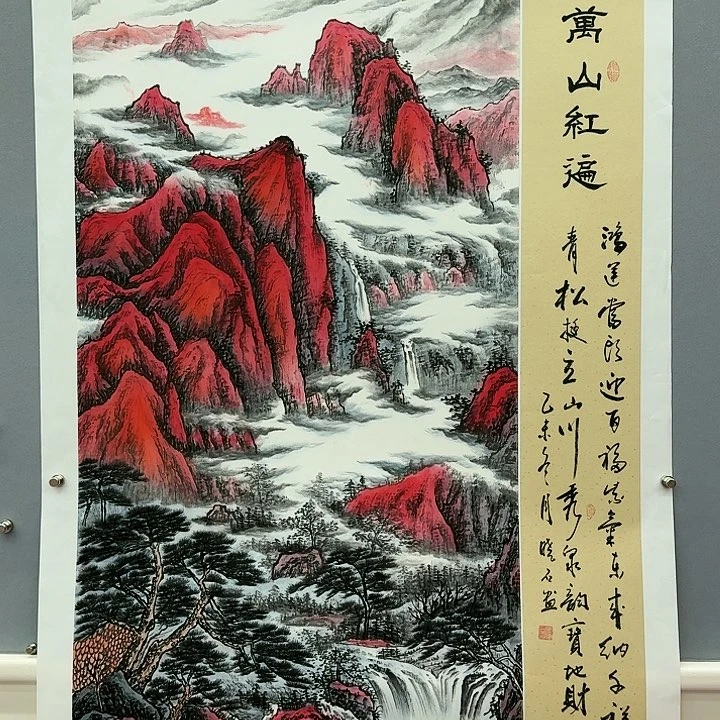 萬山紅遍
鴻運當頭迎百福紫氣東來納千祥
青松挺立山川秀泉韻寶地財
乙未冬月曉石畫